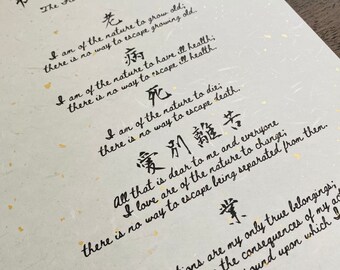 The
老
I am of the nature to grow old;
there is no way to escape growing old.
病
I am of the nature to have ill health;
there is no way to escape ill health.
死
I am of the nature to die;
there is no way to escape death.
愛別離苦
All that is dear to me and everyone
I love are of the nature to change;
there is no way to escape being separated from them.
業
are my only true belongings;
the consequences of my
upon which I